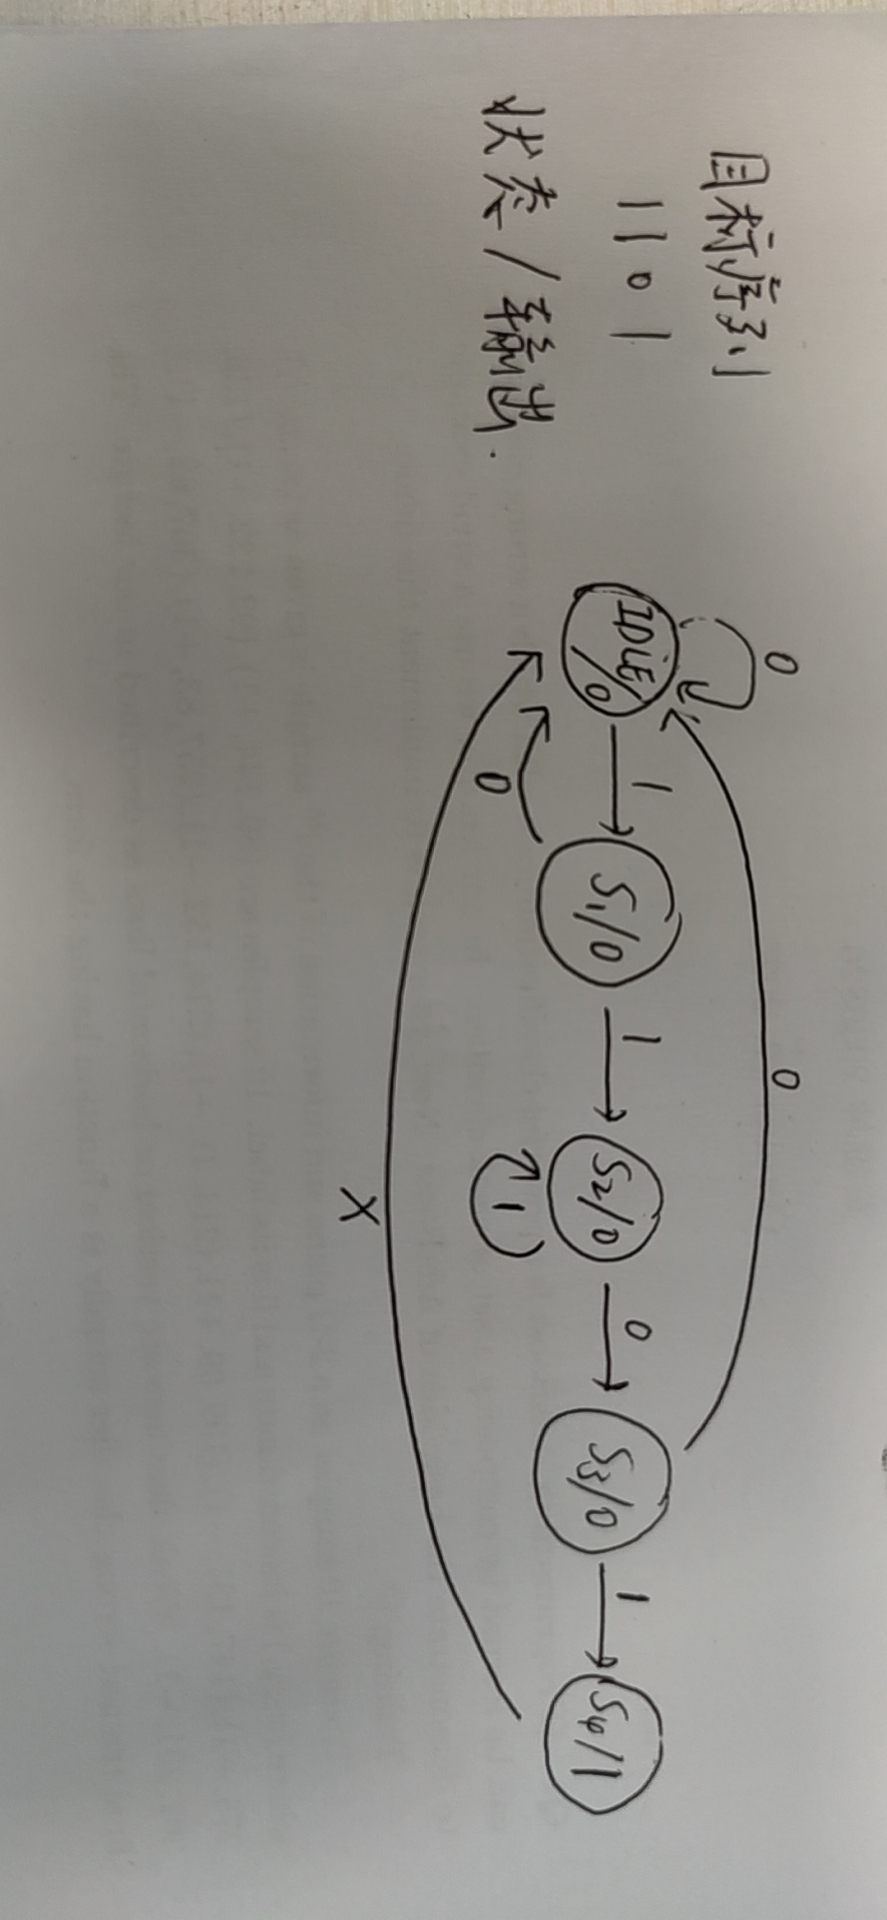 目标序列
1101
状态/输出.
0
0
IDLE/0
1
S1/0
1
S2/0
0
S3/0
1
S4/1
0
1
X